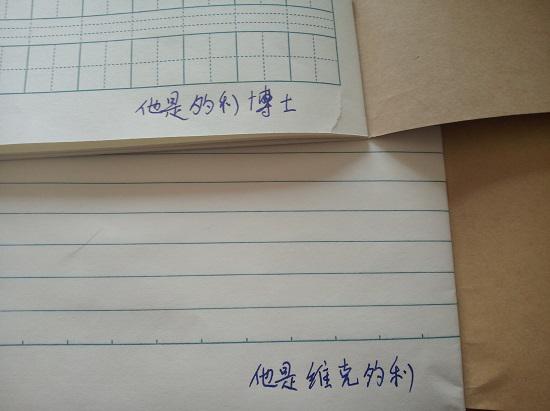 他是的利博士
他是维克的利